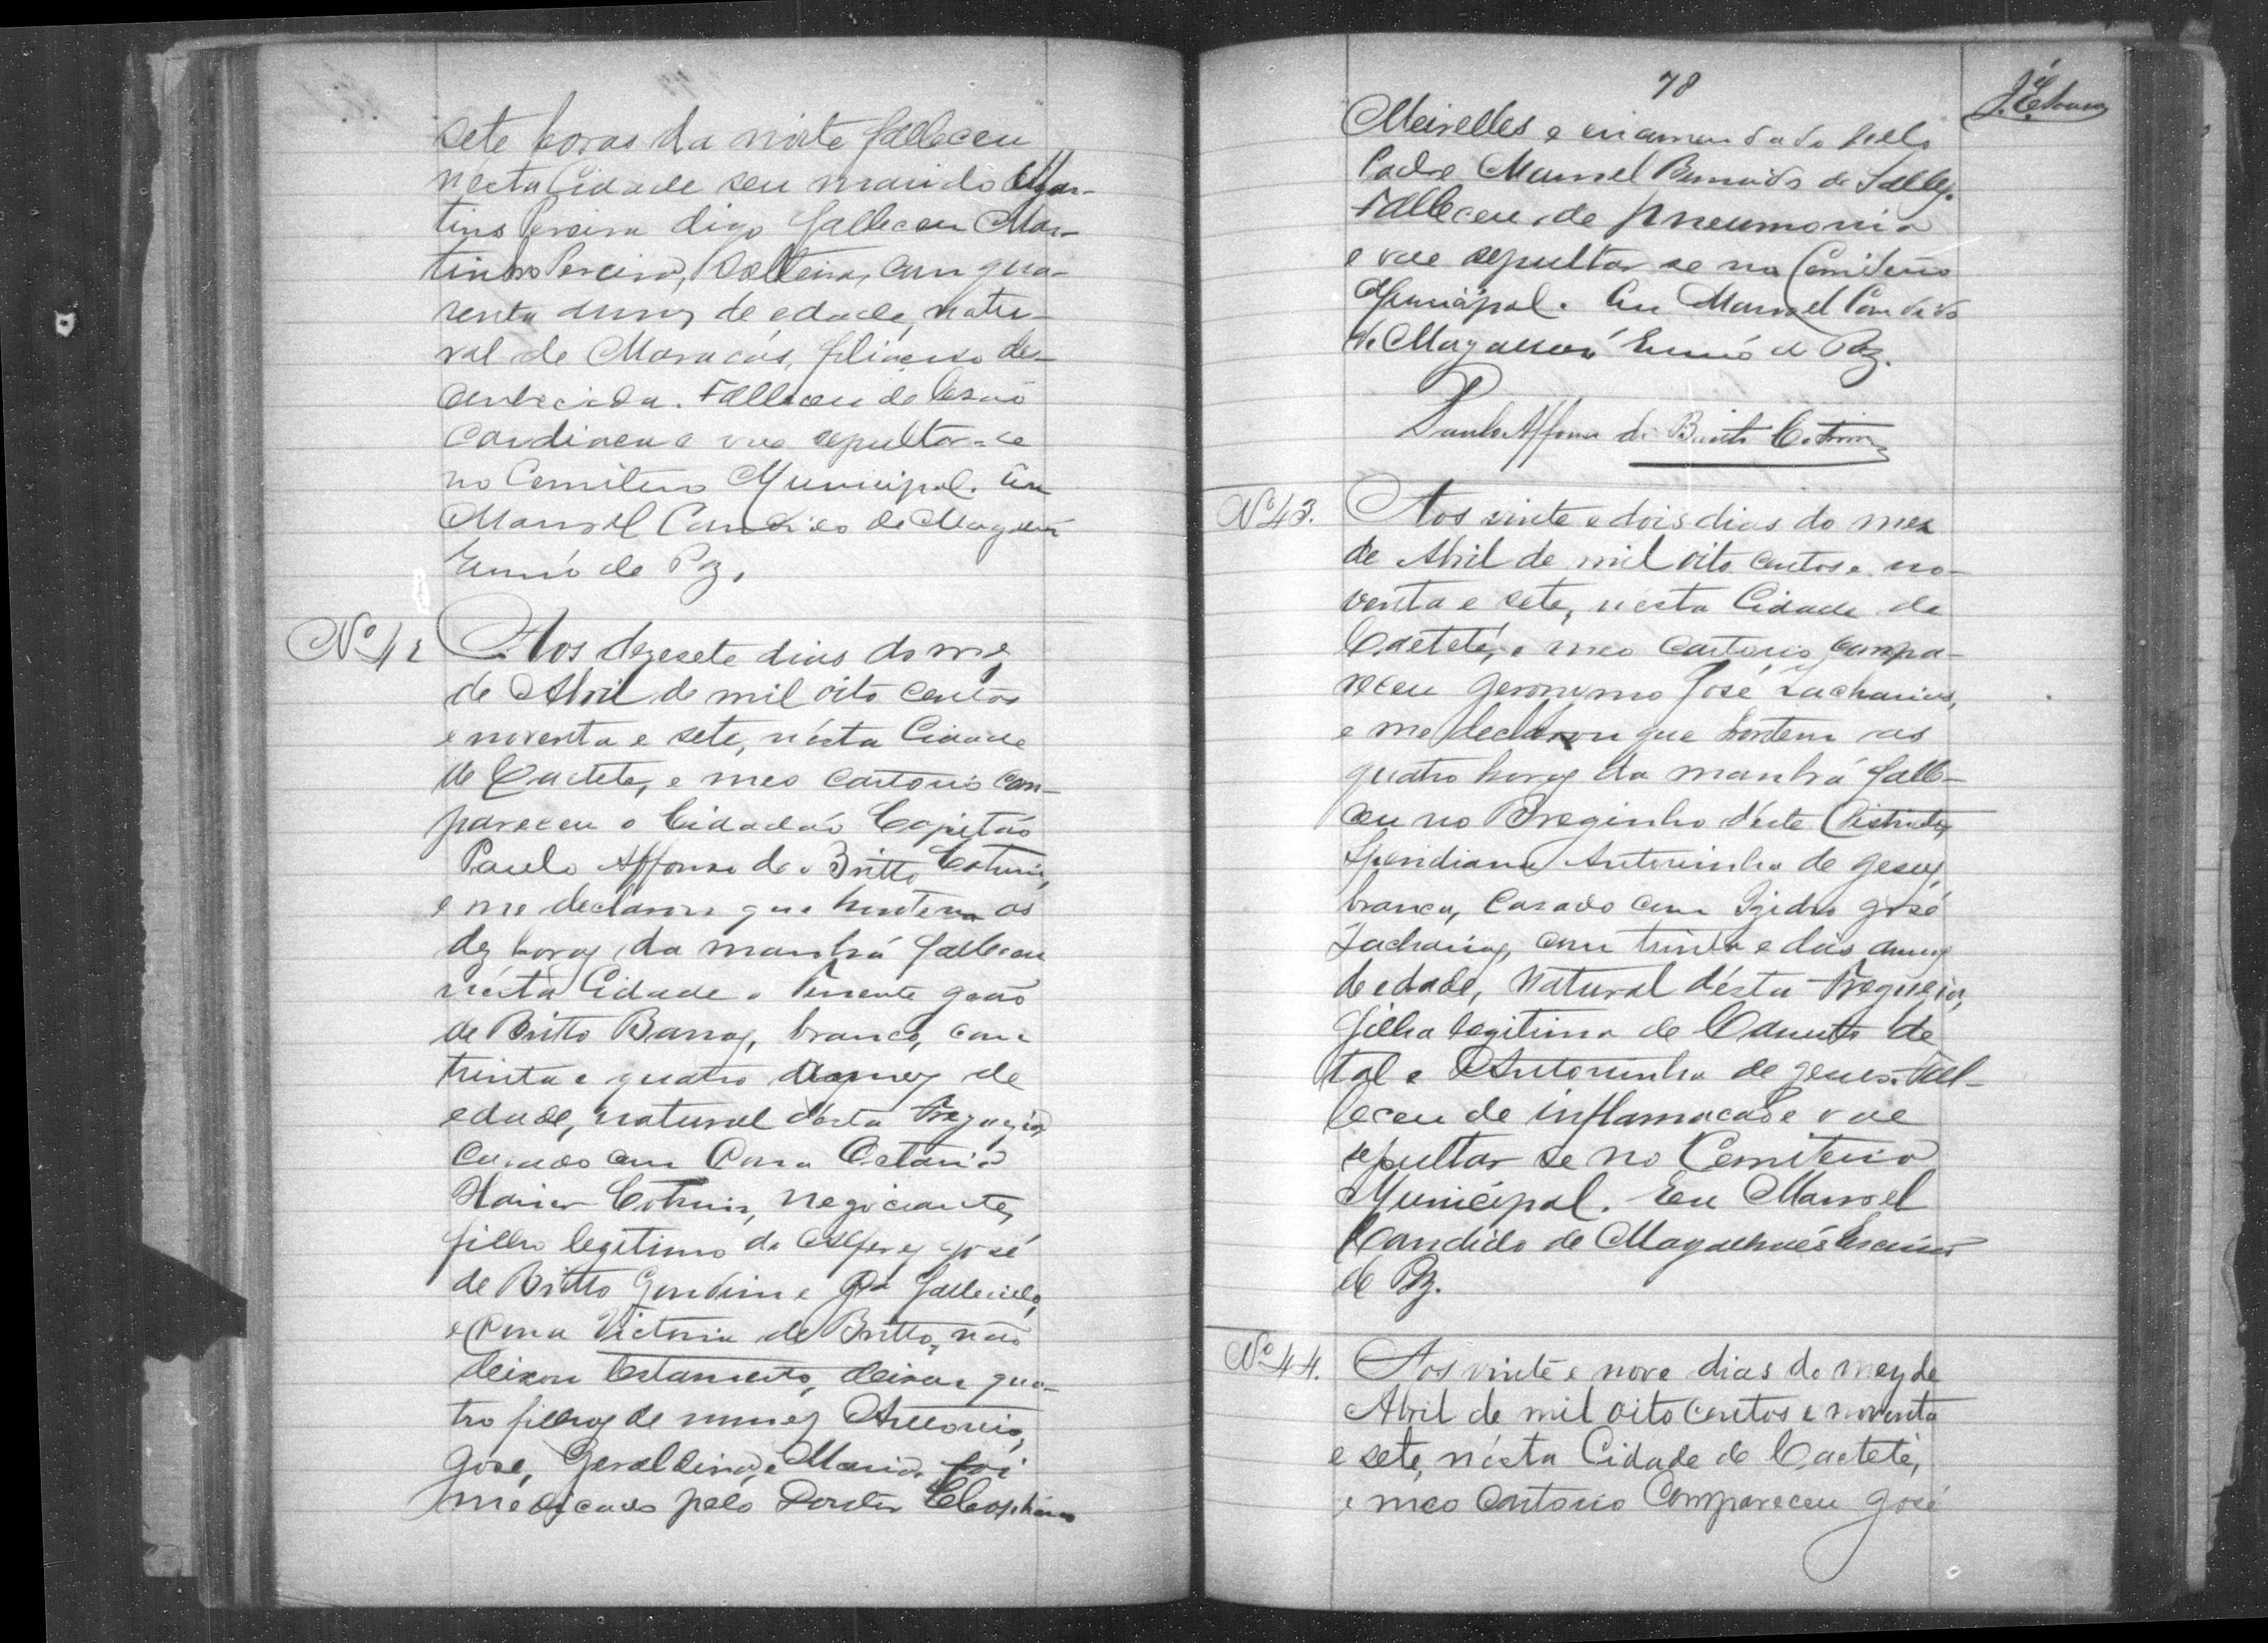 sete horas da noite falleceu
nésta Cidade seu marido Mar-
tins Pereira digo falleceu Mar-
tinho Pereira, solteiro, com qua-
renta annos de edade, natu-
ral de Maracás, filiação des-
conhecida. Falleceu de lesão
cardiaca e vae sepultar-se
no Cemiterio Municipal. Eu
Manoel Candido de Magalhães
Escrivão de Paz.
Nº 42
Aos dezesete dias do mez
de Abril de mil oito centos
e noventa e sete, nésta Cidade
de Caeteté, e meo cartorio com-
pareceu o Cidadão Capitão
Paulo Affonso de Britto Cotrim,
e me declarou que hontem as
dez horas da manhã falleceu
nésta Cidade o Tenente João
de Britto Barros, branco, com
trinta e quatro annos de
edade, natural désta Freguezia
casado com Dona Octavia
Xavier Cotrim, negociante,
filho legitimo do Alferes José
de Britto Gondim e já fallecido,
e Dona Victoria de Britto, não
deixou testamento, deixou qua-
tro filhos de nomes Antonio,
José, Geraldina, e Maria. foi
medicado pelo Doutor Cleophano
78
Meirelles e encommendado pelo
Padre Manoel Bernardo de Salles.
Falleceu de pneumonia
e vae sepultar se no Cemiterio
Municipal. Eu Manoel Candido
de Magalhães Escrivão de Paz.
Paulo Affonso de Britto Cotrim
Nº 43.
Aos vinte e dois dias do mez
de Abril de mil oito centos e no-
venta e sete, nésta Cidade de
Caeteté, e meo cartorio compa-
receu Geronymo José Zacharias,
e me declarou que hontem as
quatro horas da manhã falle-
ceu no Breginho déste Districto,
Spiridiana Antoninha de Jesus,
branca, casada com Izidro José
Zacharias, com trinta e dois annos
de edade, natural désta Freguezia,
filha legitima de de
tal e Antoninha de Jesus. Fal-
leceu de inflamacão e vae
sepultar se no Cemiterio
Municipal. Eu Manoel
Candido de Magalhães Escrivão
de Paz.
Nº 44.
Aos vinte e nove dias do mez de
Abril de mil oito centos e noventa
e sete, nésta Cidade de Caeteté,
e meo Cartorio Compareceu José